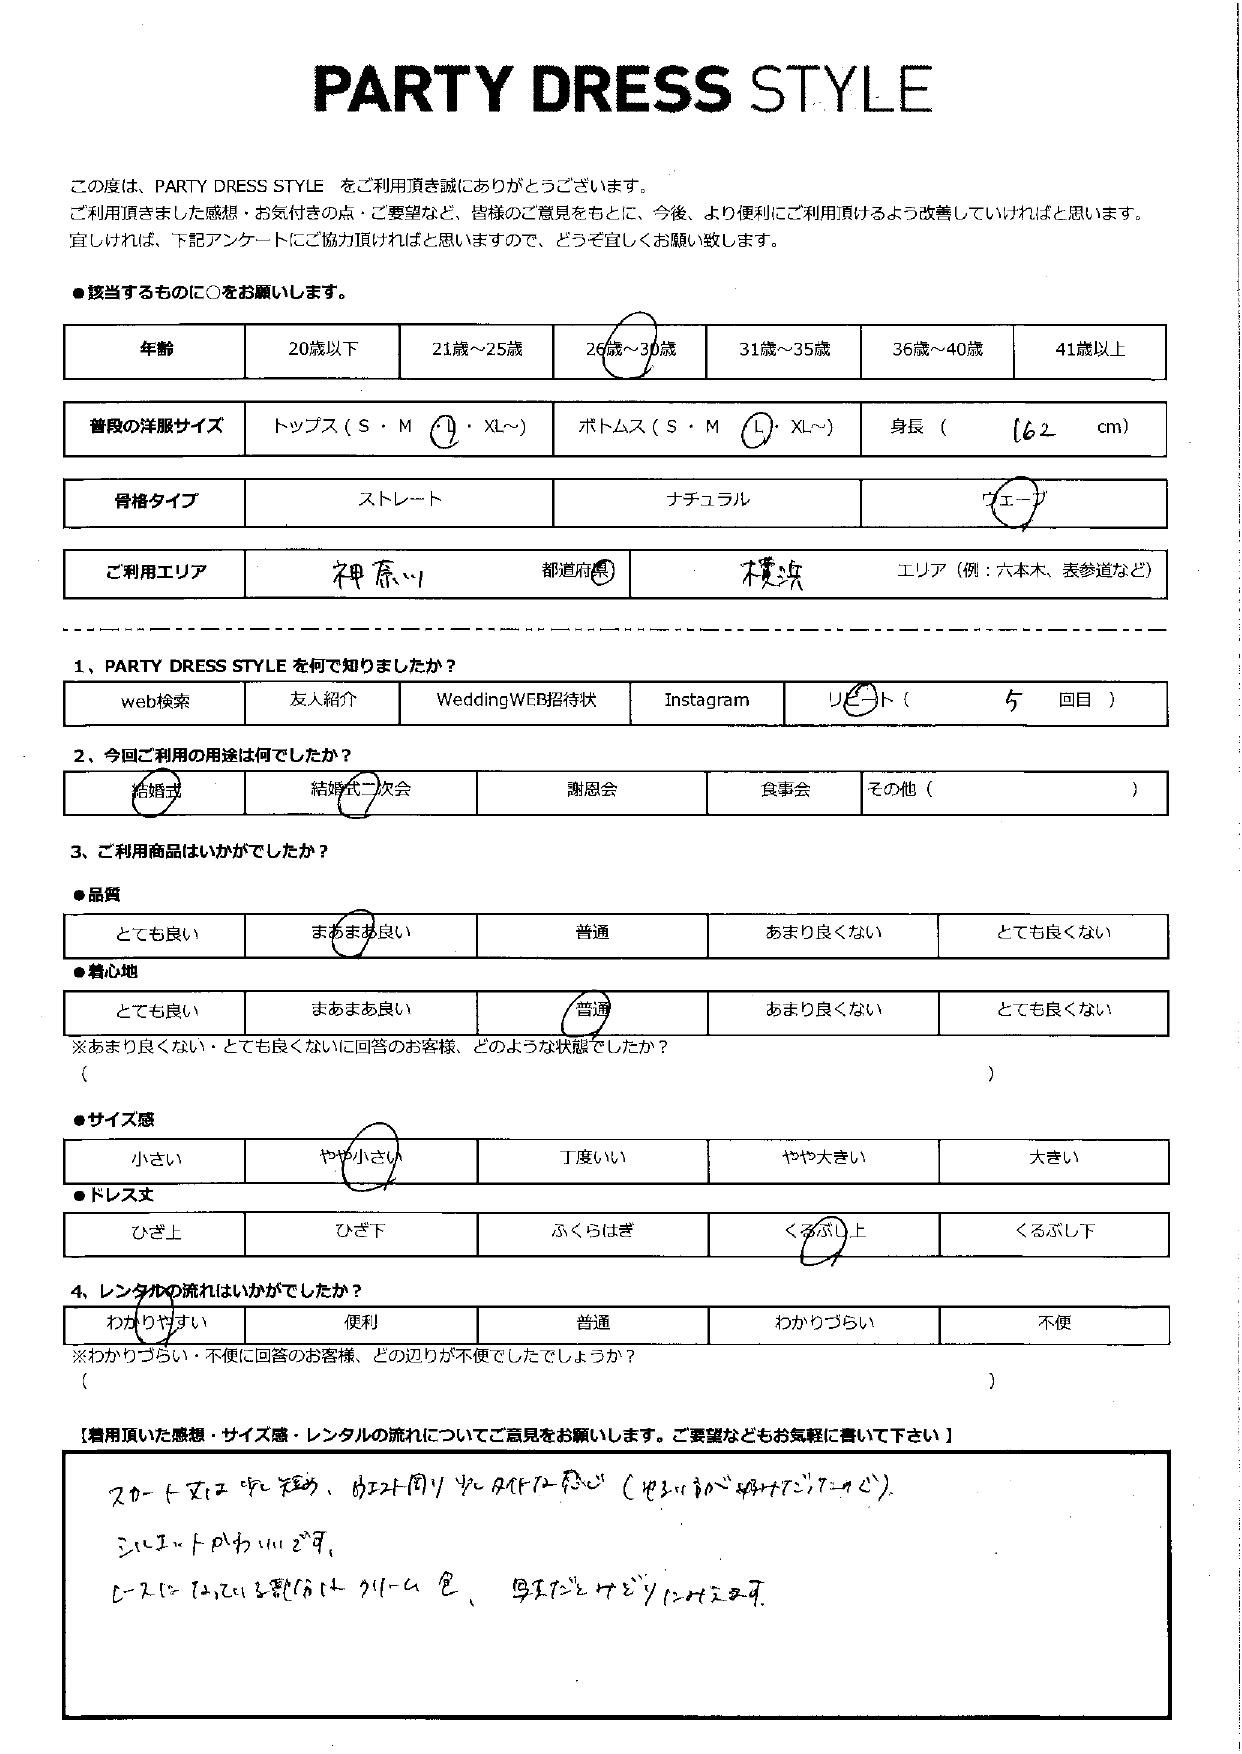 PARTY DRESS STYLE
この度は、PARTY DRESS STYLE をご利用頂き誠にありがとうございます。
ご利用頂きました感想・お気付きの点・ご要望など、皆様のご意見をもとに、今後、より便利にご利用頂けるよう改善していければと思います。
宜しければ、下記アンケートにご協力頂ければと思いますので、どうぞ宜しくお願い致します。
●該当するものに○をお願いします。
年齢 20歳以下 21歳～25歳 26歳～30歳 31歳～35歳 36歳～40歳 41歳以上
普段の洋服サイズ トップス ( S ・ M ・ L ・ XL～) ボトムス ( S ・ M ・ L ・ XL～) 身長 ( 162 cm)
骨格タイプ ストレート ナチュラル ウェーブ
ご利用エリア 神奈川 都道府県 横浜 エリア（例：六本木、表参道など）
1、PARTY DRESS STYLE を何で知りましたか？
web検索 友人紹介 WeddingWEB招待状 Instagram リピート（ 5 回目 ）
2、今回ご利用の用途は何でしたか？
結婚式 結婚式二次会 謝恩会 食事会 その他（ ）
3、ご利用商品はいかがでしたか？
●品質
とても良い まあまあ良い 普通 あまり良くない とても良くない
●着心地
とても良い まあまあ良い 普通 あまり良くない とても良くない
※あまり良くない・とても良くないに回答のお客様、どのような状態でしたか？
（ ）
●サイズ感
小さい やや小さい 丁度いい やや大きい 大きい
●ドレス丈
ひざ上 ひざ下 ふくらはぎ くるぶし上 くるぶし下
4、レンタルの流れはいかがでしたか？
わかりやすい 便利 普通 わかりづらい 不便
※わかりづらい・不便に回答のお客様、どの辺りが不便でしたでしょうか？
（ ）
【着用頂いた感想・サイズ感・レンタルの流れについてご意見をお願いします。ご要望などもお気軽に書いて下さい 】
スカート丈は少し短め、ウエスト周り少しタイトな感じ（ゆるい方が好みだったので）。
シルエットかわいいです。
レースになっている部分はクリーム色、写真だとみどりにみえます。